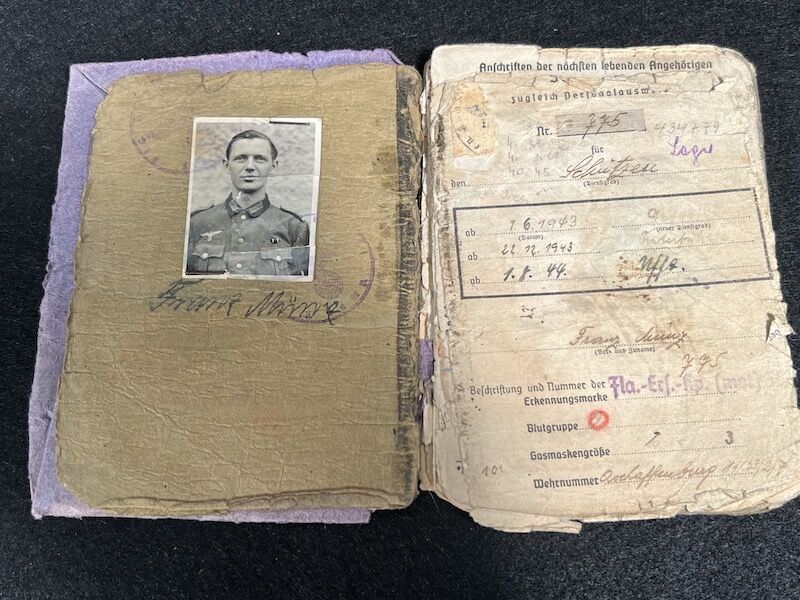 Franz
Anschriften der nächsten lebenden Angehörigen
zugleich Personalausw
Nr. 775 434779
für
den Schützen
(Dienstgrad)
ab 1.6.1943
(Datum) (neuer Dienstgrad)
ab 22.12.1943
ab 1.8.44. Uffz.
Franz
(Vor- und Zuname)
775
Beschriftung und Nummer der Fla.-Ers.-Kp. (mot)
Erkennungsmarke
Blutgruppe
Gasmaskengröße 3
Wehrnummer Aschaffenburg